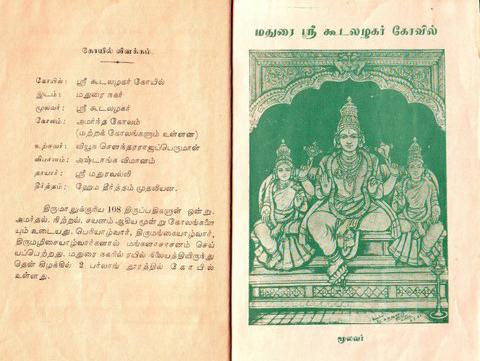 கோயில் விளக்கம்
கோயில் : ஸ்ரீ கூடலழகர் கோயில்
இடம் : மதுரை நகர்
மூலவர் : ஸ்ரீ கூடலழகர்
கோலம் : அமர்ந்த கோலம்
(மற்றக் கோலங்களும் உள்ளன)
உற்சவர் : வியூக சௌந்தரராஜப்பெருமாள்
விமானம் : அஷ்டாங்க விமானம்
தாயார் : ஸ்ரீ மதுரவல்லி
தீர்த்தம் : ஹேம தீர்த்தம் முதலியன.
திருமாலுக்குரிய 108 திருப்பதிகளுள் ஒன்று.
அமர்தல், நிற்றல், சயனம் ஆகிய மூன்று கோலங்களை
யும் உடையது. பெரியாழ்வார், திருமங்கையாழ்வார்,
திருமழிசையாழ்வார்களால் மங்களாசாசனம் செய்
யப்பெற்றது. மதுரை நகரில் ரயில் நிலையத்திலிருந்து
தென் கிழக்கில் 2 பர்லாங் தூரத்தில் கோயில்
உள்ளது.
மதுரை ஸ்ரீ கூடலழகர் கோவில்
மூலவர்